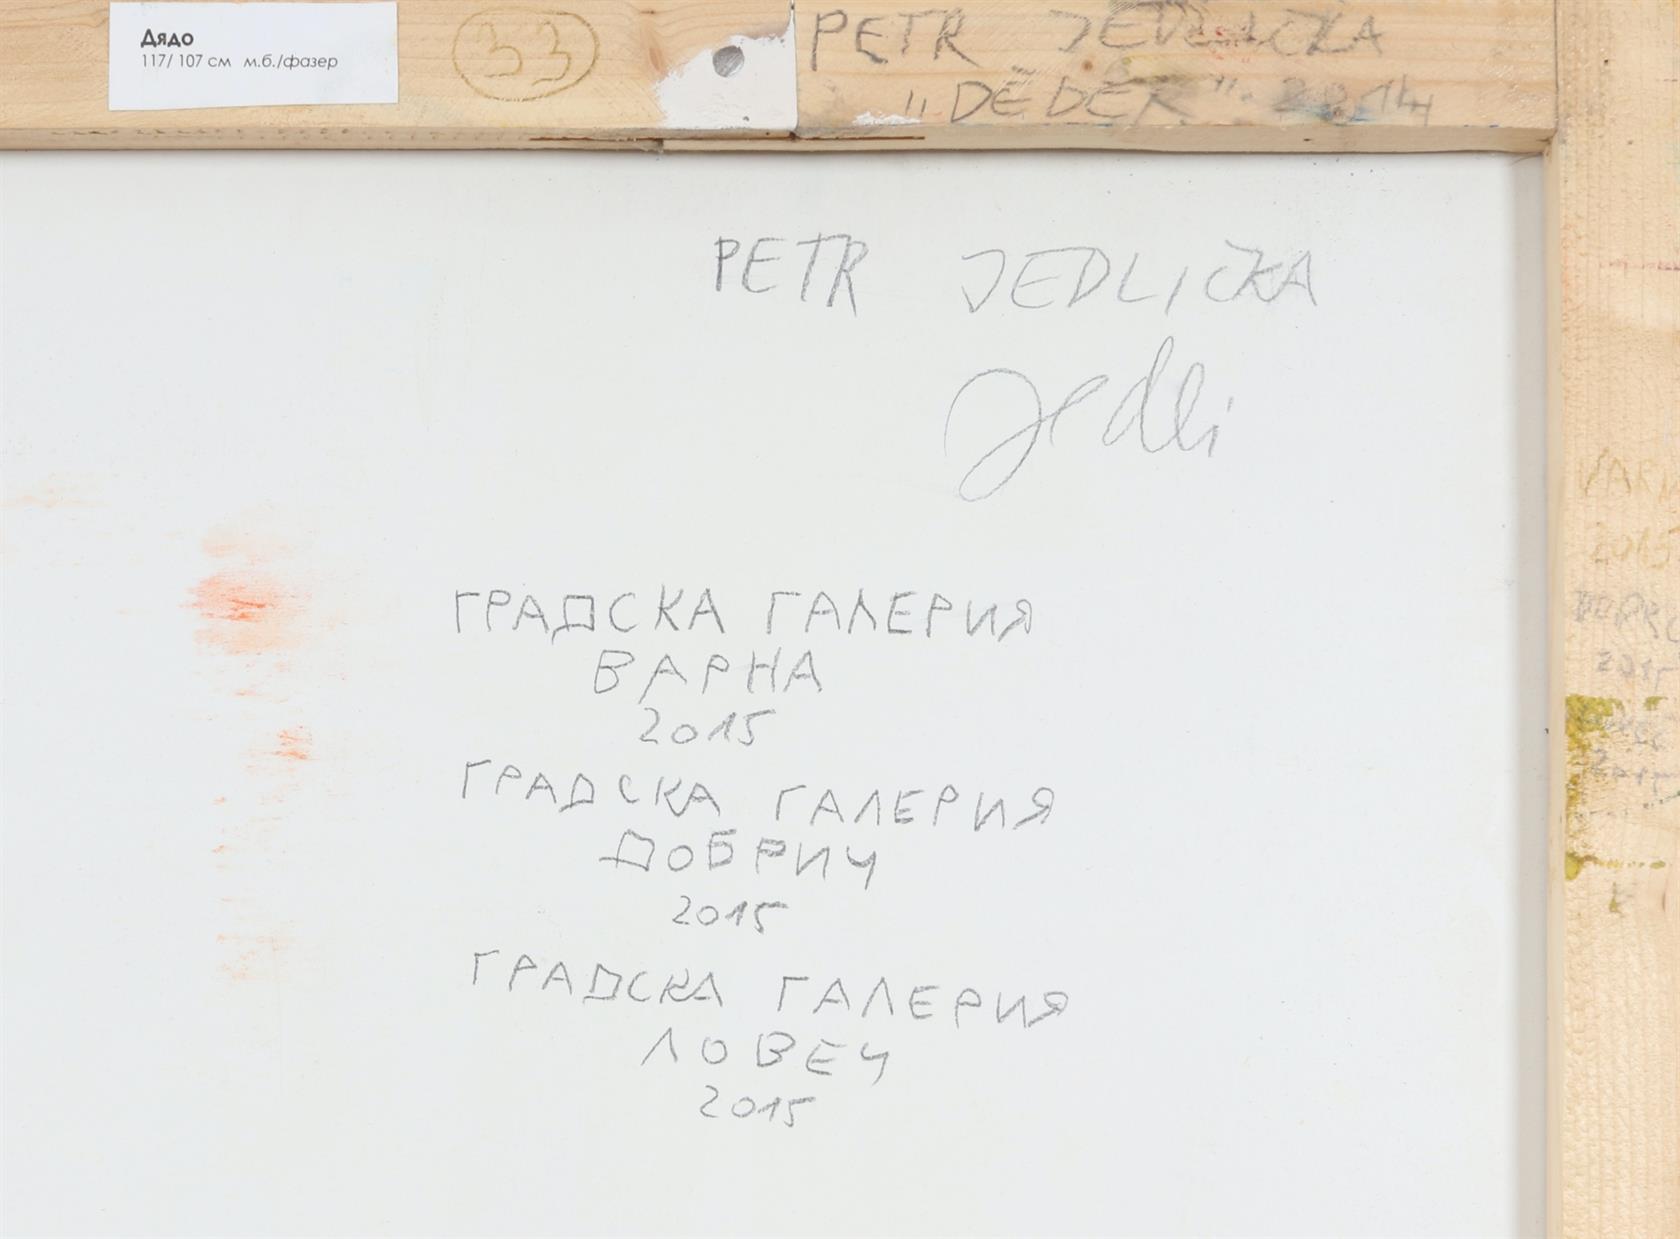 Дядо
117/ 107 см м.б./фазер
33
PETR JEDLIČKA
„DĚDEK" 2014
PETR JEDLIČKA
Jedli
ГРАДСКА ГАЛЕРИЯ
ВАРНА
2015
ГРАДСКА ГАЛЕРИЯ
ДОБРИЧ
2015
ГРАДСКА ГАЛЕРИЯ
ЛОВЕЧ
2015
2015
2015
2015